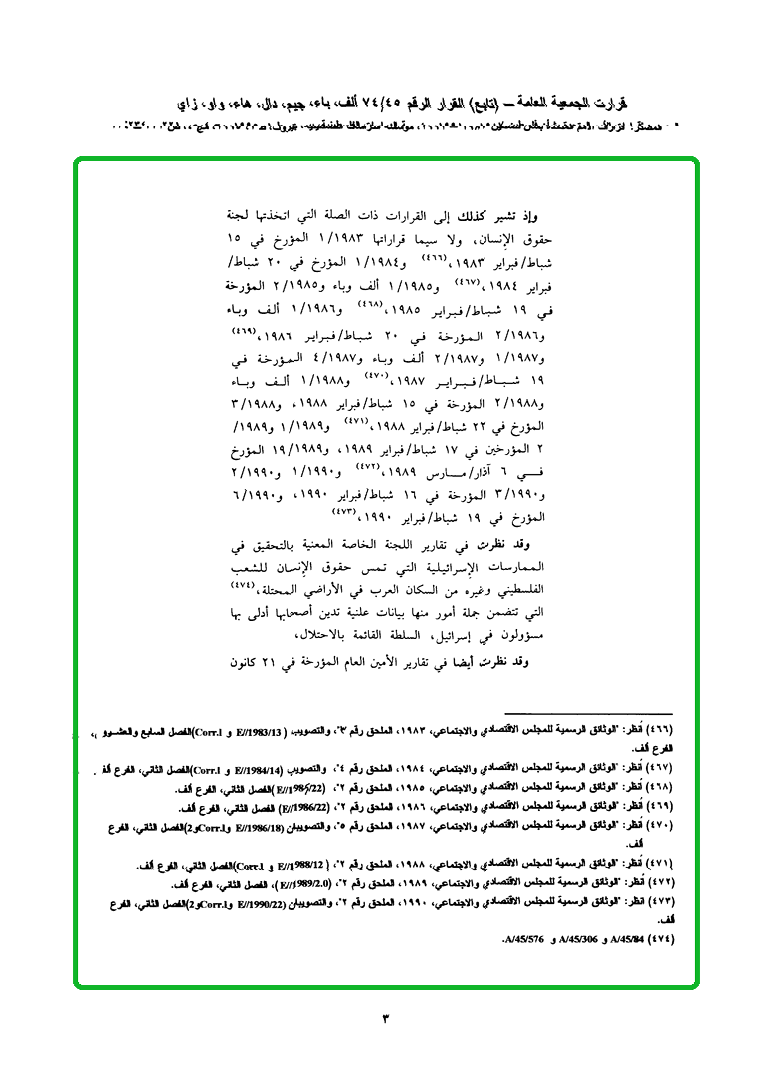 قرارت الجمعية العامة – (تابع) القرار الرقم ٧٤/٤٥ ألف، باء، جيم، دال، هاء، واو، زاي
وإذ تشير كذلك إلى القرارات ذات الصلة التي اتخذتها لجنة
حقوق الإنسان، ولا سيما قراراتها ١/١٩٨٣ المؤرخ في ١٥
شباط/فبراير ١٩٨٣،(٤٦٦) و١/١٩٨٤ المؤرخ في ٢٠ شباط/
فبراير ١٩٨٤،(٤٦٧) و١/١٩٨٥ ألف وباء و٢/١٩٨٥ المؤرخة
في ١٩ شباط/فبراير ١٩٨٥،(٤٦٨) و١/١٩٨٦ ألف وباء
و٢/١٩٨٦ المؤرخة في ٢٠ شباط/فبراير ١٩٨٦،(٤٦٩)
و١/١٩٨٧ و٢/١٩٨٧ ألف وباء و٤/١٩٨٧ المؤرخة في
١٩ شباط/فبراير ١٩٨٧،(٤٧٠) و١/١٩٨٨ ألف وباء
و٢/١٩٨٨ المؤرخة في ١٥ شباط/فبراير ١٩٨٨، و٣/١٩٨٨
المؤرخ في ٢٢ شباط/فبراير ١٩٨٨،(٤٧١) و١/١٩٨٩ و١٩٨٩/
٢ المؤرخين في ١٧ شباط/فبراير ١٩٨٩، و١٩/١٩٨٩ المؤرخ
في ٦ آذار/مارس ١٩٨٩،(٤٧٢) و١/١٩٩٠ و٢/١٩٩٠
و٣/١٩٩٠ المؤرخة في ١٦ شباط/فبراير ١٩٩٠، و٦/١٩٩٠
المؤرخ في ١٩ شباط/فبراير ١٩٩٠،(٤٧٣)
وقد نظرت في تقارير اللجنة الخاصة المعنية بالتحقيق في
الممارسات الإسرائيلية التي تمس حقوق الإنسان للشعب
الفلسطيني وغيره من السكان العرب في الأراضي المحتلة،(٤٧٤)
التي تتضمن جملة أمور منها بيانات علنية تدين أصحابها أدلى بها
مسؤولون في إسرائيل، السلطة القائمة بالاحتلال،
وقد نظرت أيضا في تقارير الأمين العام المؤرخة في ٢١ كانون
(٤٦٦) أنظر: "الوثائق الرسمية للمجلس الاقتصادي والاجتماعي، ١٩٨٣، الملحق رقم ٣"، والتصويب (E//1983/13 و Corr.l)الفصل السابع والعشرون،
الفرع ألف.
(٤٦٧) أنظر: "الوثائق الرسمية للمجلس الاقتصادي والاجتماعي، ١٩٨٤، الملحق رقم ٤"، والتصويب (E//1984/14 و Corr.l)الفصل الثاني، الفرع ألف.
(٤٦٨) أنظر: "الوثائق الرسمية للمجلس الاقتصادي والاجتماعي، ١٩٨٥، الملحق رقم ٢"، (E//1985/22)الفصل الثاني، الفرع ألف.
(٤٦٩) أنظر: "الوثائق الرسمية للمجلس الاقتصادي والاجتماعي، ١٩٨٦، الملحق رقم ٢"، (E//1986/22) الفصل الثاني، الفرع ألف.
(٤٧٠) أنظر: "الوثائق الرسمية للمجلس الاقتصادي والاجتماعي، ١٩٨٧، الملحق رقم ٥"، والتصويبان (E//1986/18 وCorr.l و2)الفصل الثاني، الفرع
ألف.
(٤٧١) أنظر: "الوثائق الرسمية للمجلس الاقتصادي والاجتماعي، ١٩٨٨، الملحق رقم ٢"، (E//1988/12 و Corr.l)الفصل الثاني، الفرع ألف.
(٤٧٢) أنظر: "الوثائق الرسمية للمجلس الاقتصادي والاجتماعي، ١٩٨٩، الملحق رقم ٢"، (E//1989/2.0)، الفصل الثاني، الفرع ألف.
(٤٧٣) أنظر: "الوثائق الرسمية للمجلس الاقتصادي والاجتماعي، ١٩٩٠، الملحق رقم ٢"، والتصويبان (E//1990/22 وCorr.l و2)الفصل الثاني، الفرع
ألف.
(٤٧٤) A/45/84 و A/45/306 و A/45/576.
٣